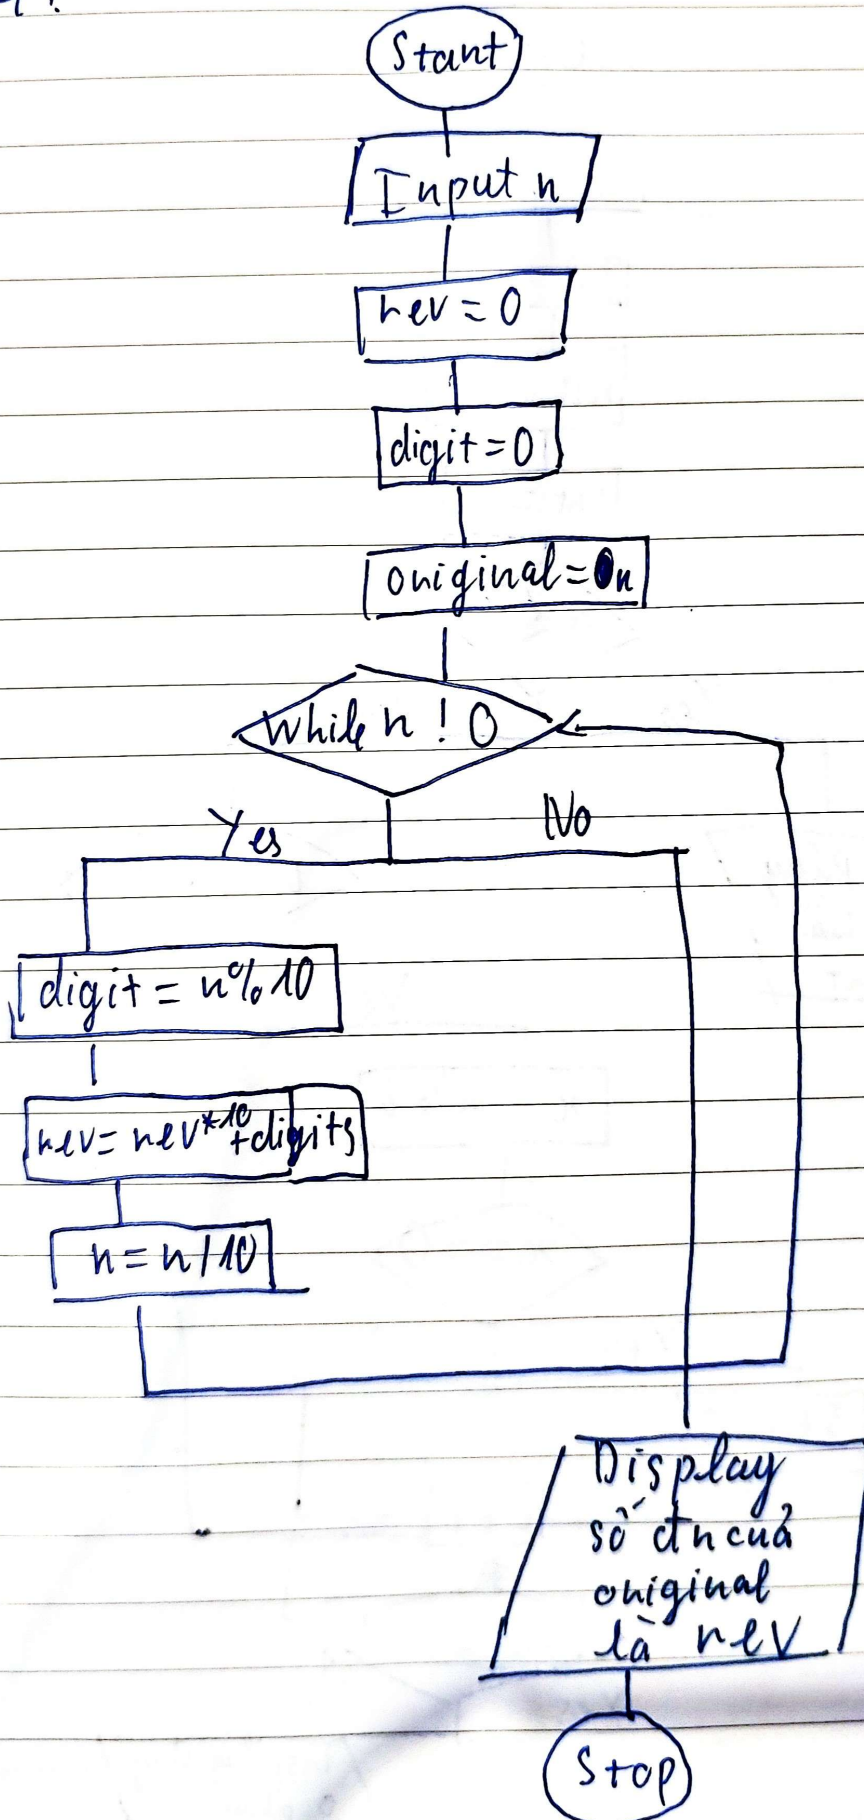 Start
Input n
rev = 0
digit = 0
original = n
While n ! 0
Yes
No
digit = n % 10
rev = rev * 10
+ digits
n = n / 10
Display
số đn của
original
là rev
Stop